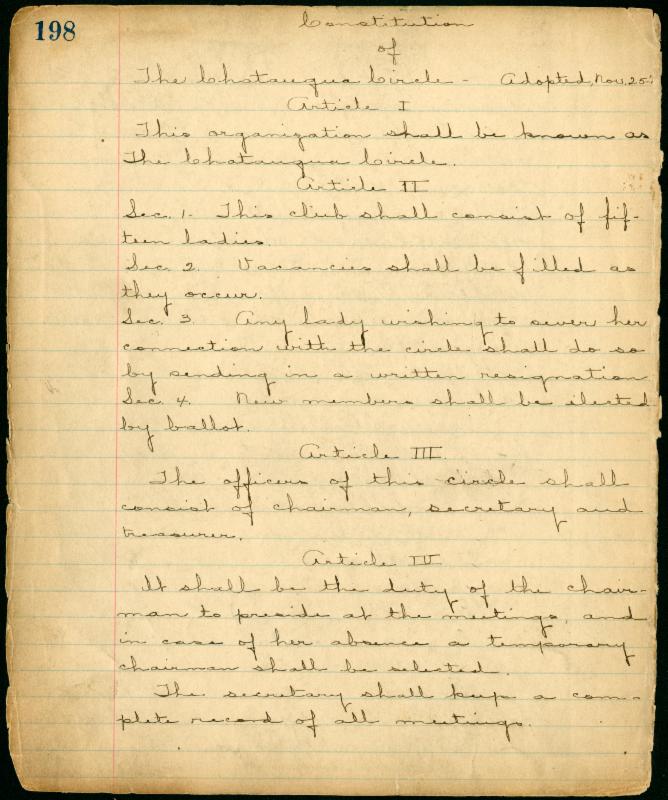 198
Constitution
of
The Chatauqua Circle - Adopted, Nov. 25-
Article I
This organization shall be known as
The Chatauqua Circle.
Article II
Sec. 1. This club shall consist of fif-
teen ladies.
Sec. 2. Vacancies shall be filled as
they occur.
Sec. 3 Any lady wishing to sever her
connection with the circle shall do so
by sending in a written resignation
Sec. 4. New members shall be elected
by ballot.
Article III.
The officers of this circle shall
consist of chairman, secretary and
treasurer.
Article IV
It shall be the duty of the chair-
man to preside at the meetings, and
in case of her absence a temporary
chairman shall be selected.
The secretary shall keep a com-
plete record of all meetings.